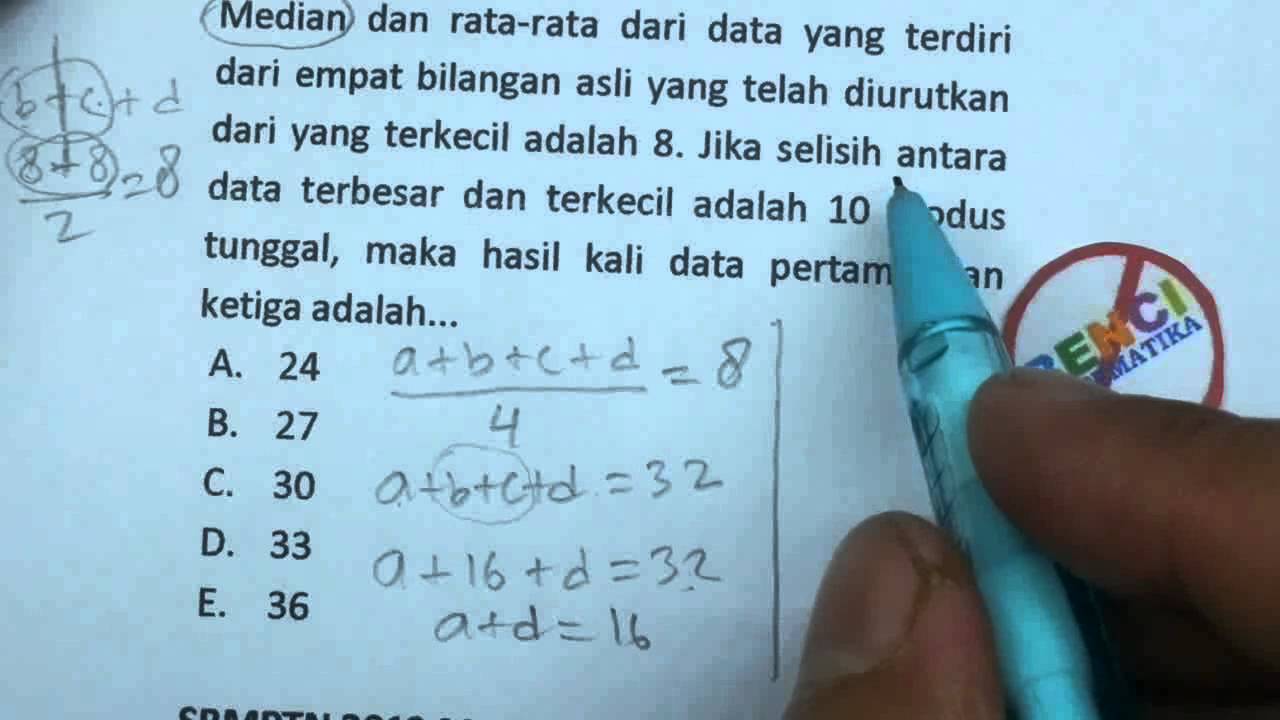 Median dan rata-rata dari data yang terdiri
dari empat bilangan asli yang telah diurutkan
dari yang terkecil adalah 8. Jika selisih antara
data terbesar dan terkecil adalah 10
tunggal, maka hasil kali data
ketiga adalah...
A. 24
B. 27
C. 30
D. 33
E. 36
b+c+d
8+8
2
=8
a+b+c+d
4
= 8
a+b+c+d = 32
a+16+d=32
a+d=16